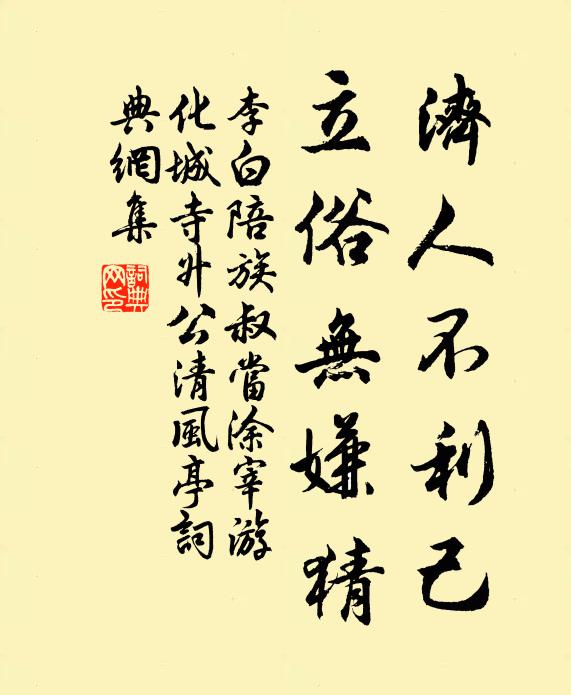 濟人不利己
立俗無嫌猜
李白陪族叔當涂宰游
化城寺升公清風亭詞
典網集
詞典网印